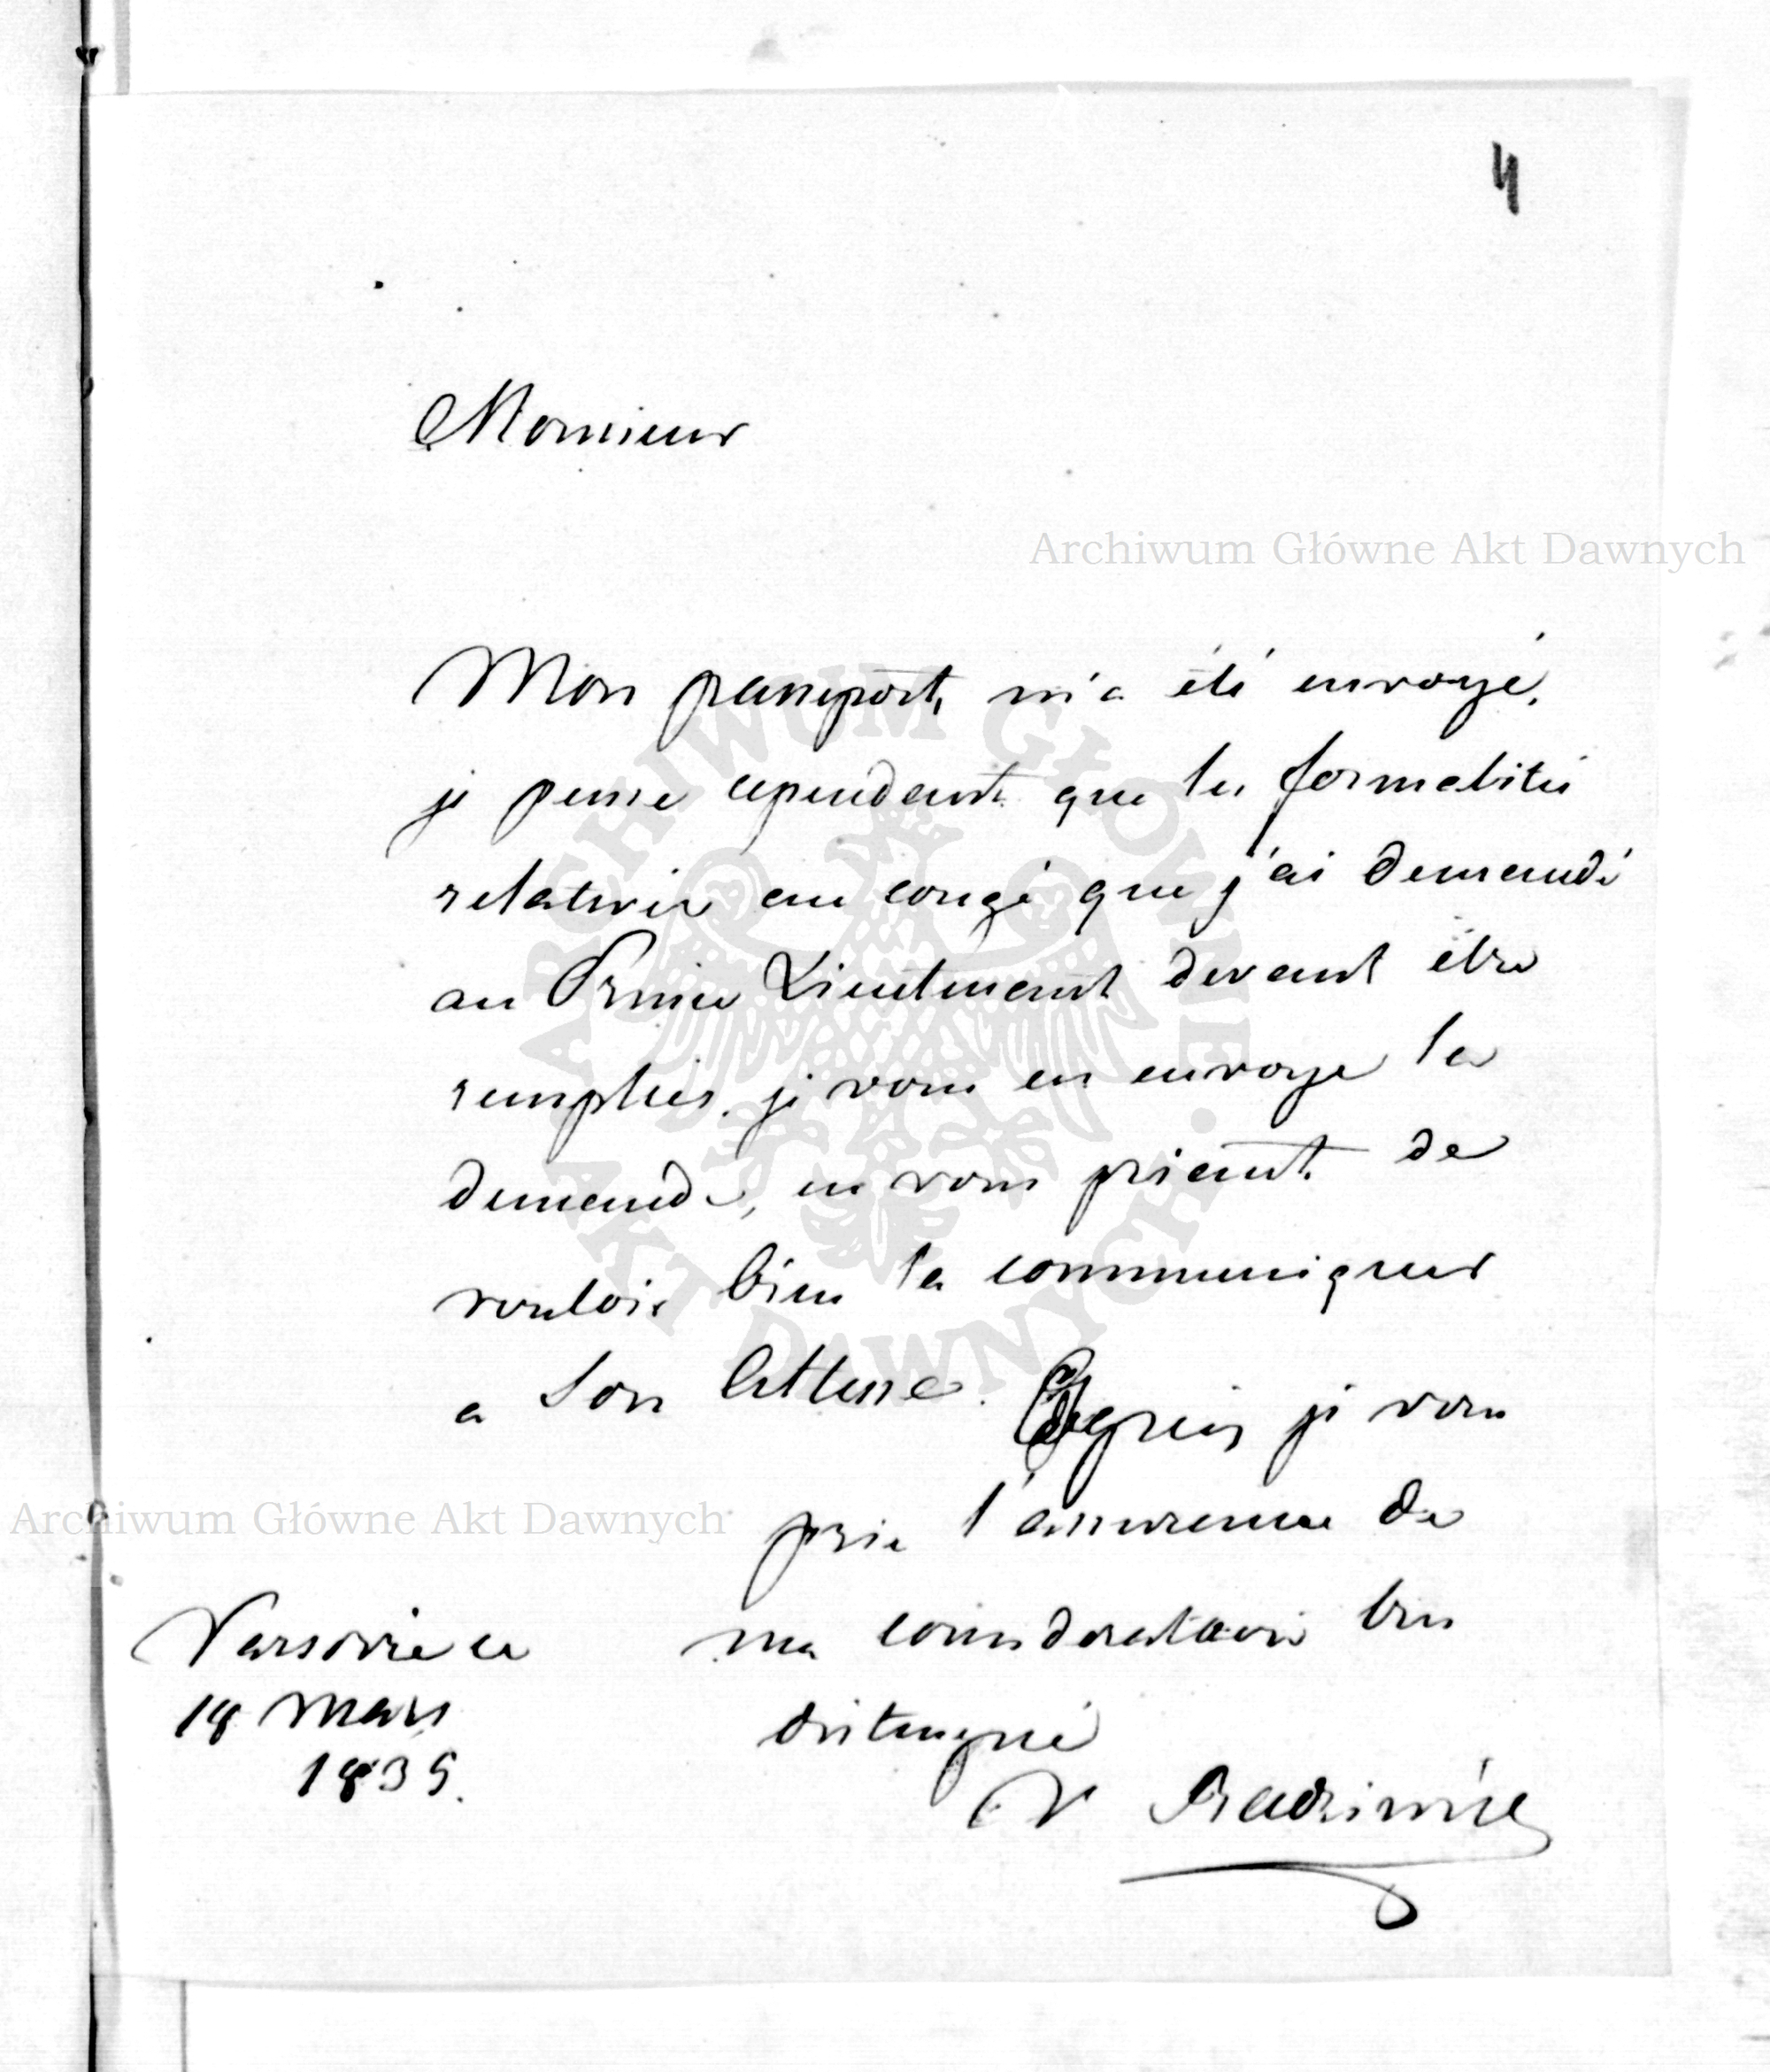 4
Monsieur
Archiwum Główne Akt Dawnych
Mon passeport m'a été envoyé,
je pense cependant que les formalités
relatives au congé que j'ai demandé
au Prince Lieutenant devant être
remplies, je vous en envoye la
demande, en vous priant de
vouloir bien la communiquer
a Son Altesse. je vous
prie l'assurance de
ma consideration bien
distingué
Archiwum Główne Akt Dawnych
Varsovie ce
18 Mars
1835.
V Radziwiłł
ARCHIWUM GŁÓWNE AKT DAWNYCH